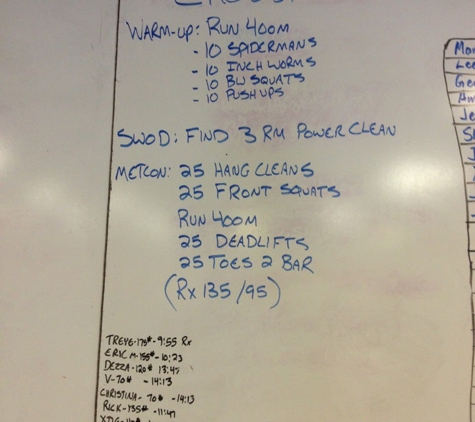 WARM-UP: RUN 400M
- 10 SPIDERMANS
- 10 INCH WORMS
- 10 BW SQUATS
- 10 PUSHUPS
SWOD: FIND 3 RM POWER CLEAN
METCON: 25 HANG CLEANS
25 FRONT SQUATS
RUN 400M
25 DEADLIFTS
25 TOES 2 BAR
(RX 135/95)
ERIC M-155# - 10:23
DEZZA-120# 13:47
V-70# - 14:13
CHRISTINA- 70# - 14:13
RICK-135# - 11:47
Mon
Lee
Je